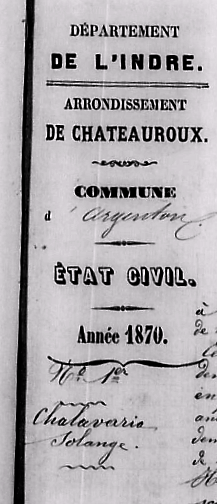 DÉPARTEMENT
DE L'INDRE.
ARRONDISSEMENT
DE CHATEAUROUX.
COMMUNE
d'Argenton.
ÉTAT CIVIL.
Année 1870.
N.o 1er
Chalaverie
Solange.